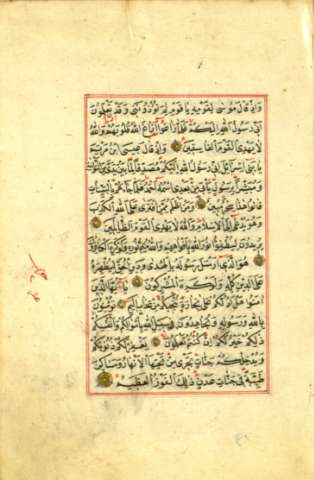 وَاِذْ قَالَ مُوسٰى لِقَوْمِهِ يَا قَوْمِ لِمَ تُؤْذُونَنِي وَقَدْ تَعْلَمُونَ
اَنِّي رَسُولُ اللهِ اِلَيْكُمْ فَلَمَّا زَاغُوا اَزَاغَ اللهُ قُلُوبَهُمْ وَاللهُ
لَا يَهْدِي الْقَوْمَ الْفَاسِقِينَ وَاِذْ قَالَ عِيسَى ابْنُ مَرْيَمَ
يَا بَنِي اِسْرَائِيلَ اِنِّي رَسُولُ اللهِ اِلَيْكُمْ مُصَدِّقًا لِمَا بَيْنَ يَدَيَّ مِنَ التَّوْرٰيةِ
وَمُبَشِّرًا بِرَسُولٍ يَأْتِي مِنْ بَعْدِي اسْمُهُ اَحْمَدُ فَلَمَّا جَاءَهُمْ بِالْبَيِّنَاتِ
قَالُوا هٰذَا سِحْرٌ مُبِينٌ وَمَنْ اَظْلَمُ مِمَّنِ افْتَرٰى عَلَى اللهِ الْكَذِبَ
وَهُوَ يُدْعٰى اِلَى الْاِسْلَامِ وَاللهُ لَا يَهْدِي الْقَوْمَ الظَّالِمِينَ
يُرِيدُونَ لِيُطْفِؤُا نُورَ اللهِ بِاَفْوَاهِهِمْ وَاللهُ مُتِمُّ نُورِهِ وَلَوْ كَرِهَ الْكَافِرُونَ
هُوَ الَّذِي اَرْسَلَ رَسُولَهُ بِالْهُدٰى وَدِينِ الْحَقِّ لِيُظْهِرَهُ
عَلَى الدِّينِ كُلِّهِ وَلَوْ كَرِهَ الْمُشْرِكُونَ يَا اَيُّهَا الَّذِينَ
اٰمَنُوا هَلْ اَدُلُّكُمْ عَلٰى تِجَارَةٍ تُنْجِيكُمْ مِنْ عَذَابٍ اَلِيمٍ تُؤْمِنُونَ
بِاللهِ وَرَسُولِهِ وَتُجَاهِدُونَ فِي سَبِيلِ اللهِ بِاَمْوَالِكُمْ وَاَنْفُسِكُمْ
ذٰلِكُمْ خَيْرٌ لَكُمْ اِنْ كُنْتُمْ تَعْلَمُونَ يَغْفِرْ لَكُمْ ذُنُوبَكُمْ
وَيُدْخِلْكُمْ جَنَّاتٍ تَجْرِي مِنْ تَحْتِهَا الْاَنْهَارُ وَمَسَاكِنَ
طَيِّبَةً فِي جَنَّاتِ عَدْنٍ ذٰلِكَ الْفَوْزُ الْعَظِيمُ